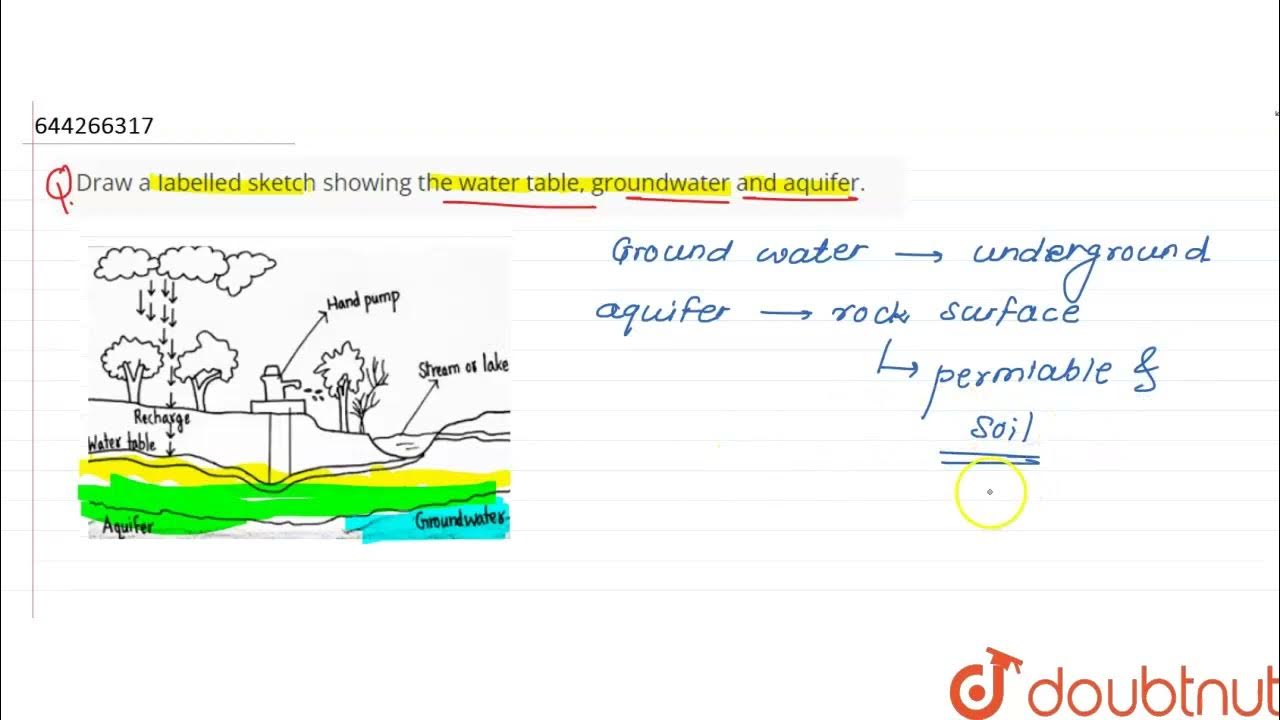 644266317
Q. Draw a labelled sketch showing the water table, groundwater and aquifer.
Ground water → underground
aquifer → rock surface
↳ permiable &
soil
Hand pump
Stream or lake
Recharge
Water table
Aquifer
Groundwater
doubtnut